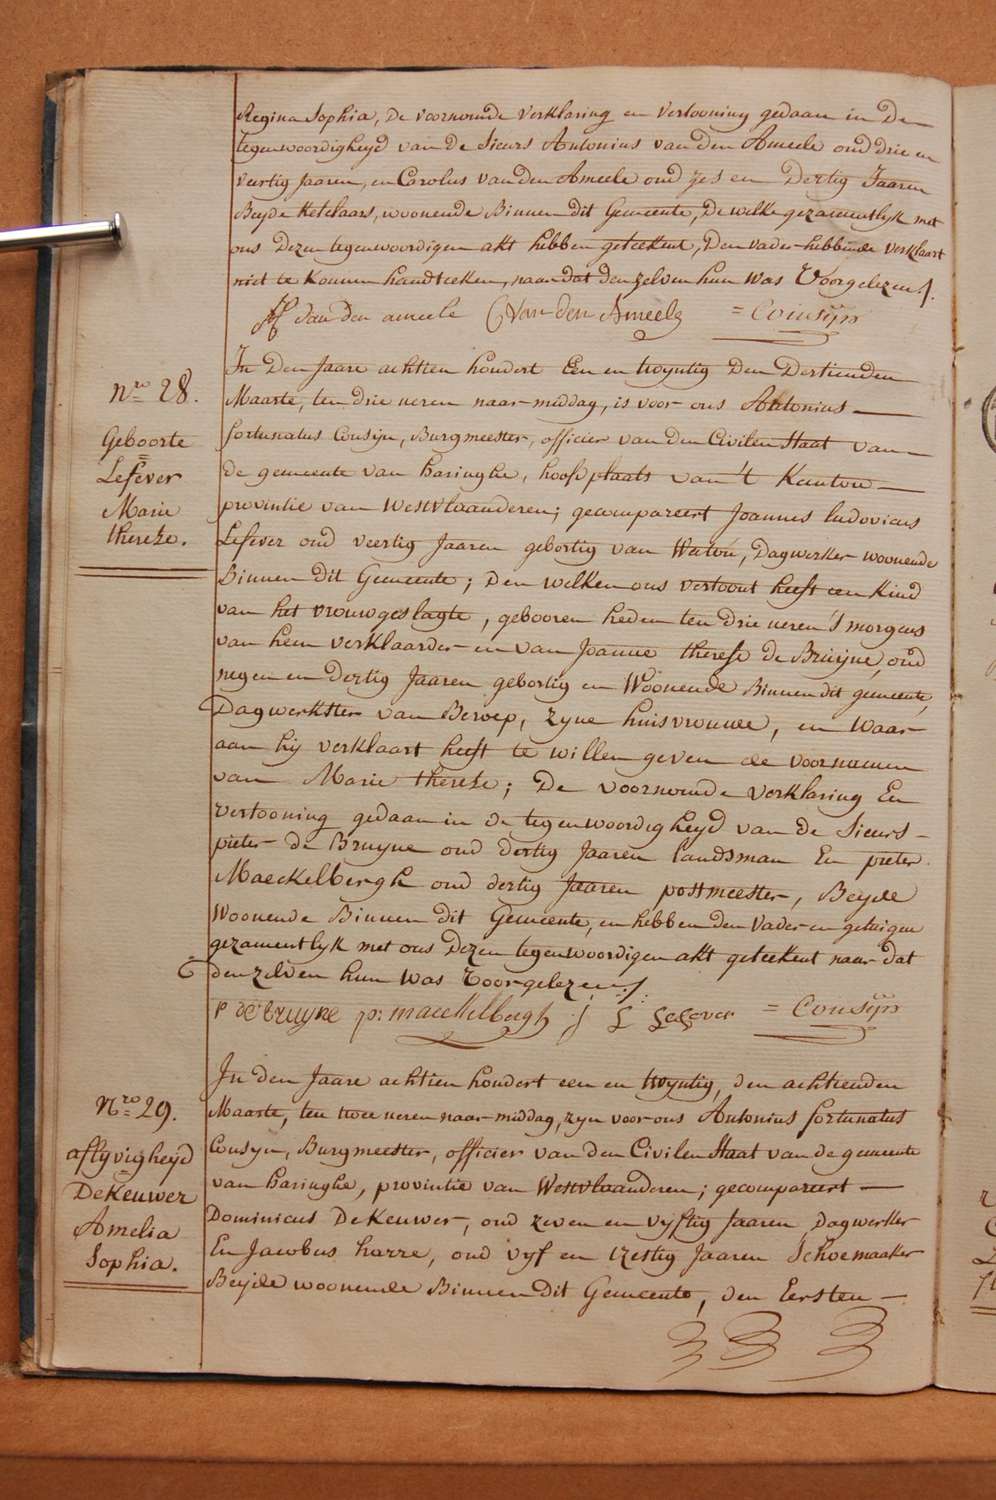 Regina Sophia, De voornoemde verklaring en vertooning gedaan in De
tegenwoordigheyd van de Sieurs Antonius van den Ameele oud drie en
veertig Jaaren, en Carolus van den Ameele oud zes en Dertig Jaaren
Beyde Ketelaars, woonende Binnen dit Gemeente, De welke gezamentlyk met
ons Dezen tegenwoordigen akt hebben geteekent, Den vader hebbende verklaart
niet te konnen handteeken, naar dat den zelven hun was Voorgelezen /.
AF van den ameele C Van den Ameele = Cousijn
Nro 28.
Geboorte
Lefever
Marie
thereze.
In Den Jaare achtien hondert Een en twyntig Den Dertienden
Maarte, ten drie ueren naar-middag, is voor ons Antonius
fortunatus Cousijn, Burgmeester, officier van den Civilen Staat van
de gemeente van haringhe, hoofdplaats van 't Kanton
provintie van Westvlaanderen; gecompareert Joannes ludovicus
Lefever oud veertig Jaaren gebortig van Watou, Dagwerker woonende
Binnen dit Gemeente; Den welken ons vertoont heeft een kind
van het vrouwgeslagte, gebooren heden ten drie ueren 's morgens
van hem verklaarder en van Joanne therese de Bruijne, oud
negen en dertig Jaaren gebortig en Woonende Binnen dit gemeente,
Dagwerkster van Beroep, zyne huisvrouwe, en waar-
aan hij verklaart heeft te willen geven de voornamen
van Marie thereze; De voornoemde verklaring En
vertooning gedaan in de tegenwoordigheyd van de Sieurs
pieter de Bruyne oud dertig Jaaren landsman En pieter
Maeckelbergh oud dertig Jaaren postmeester, Beyde
Woonende Binnen dit Gemeente, en hebben den Vader en getuigen
gezamentlyk met ons Dezen tegenwoordigen akt geteekent naar dat
den zelven hun was Voorgelezen /.
P de bruyne p: maeckelbergh j L Lefever = Cousijn
Nro 29.
aflyvigheyd
DeKeuwer
Amelia
Sophia.
In den Jaare achtien hondert een en twyntig, den achtienden
Maarte, ten twee ueren naar middag, zyn voor ons Antonius fortunatus
Cousyn, Burgmeester, officier van den Civilen Staat van de gemeente
van haringhe, provintie van Westvlaanderen; gecompareert
Dominicus DeKeuwer, oud zeven en vyftig Jaaren Dagwerker
En Jacobus harre, oud vyf en tzestig Jaaren Schoemaaker
Beyde woonende Binnen dit Gemeente, den Eersten